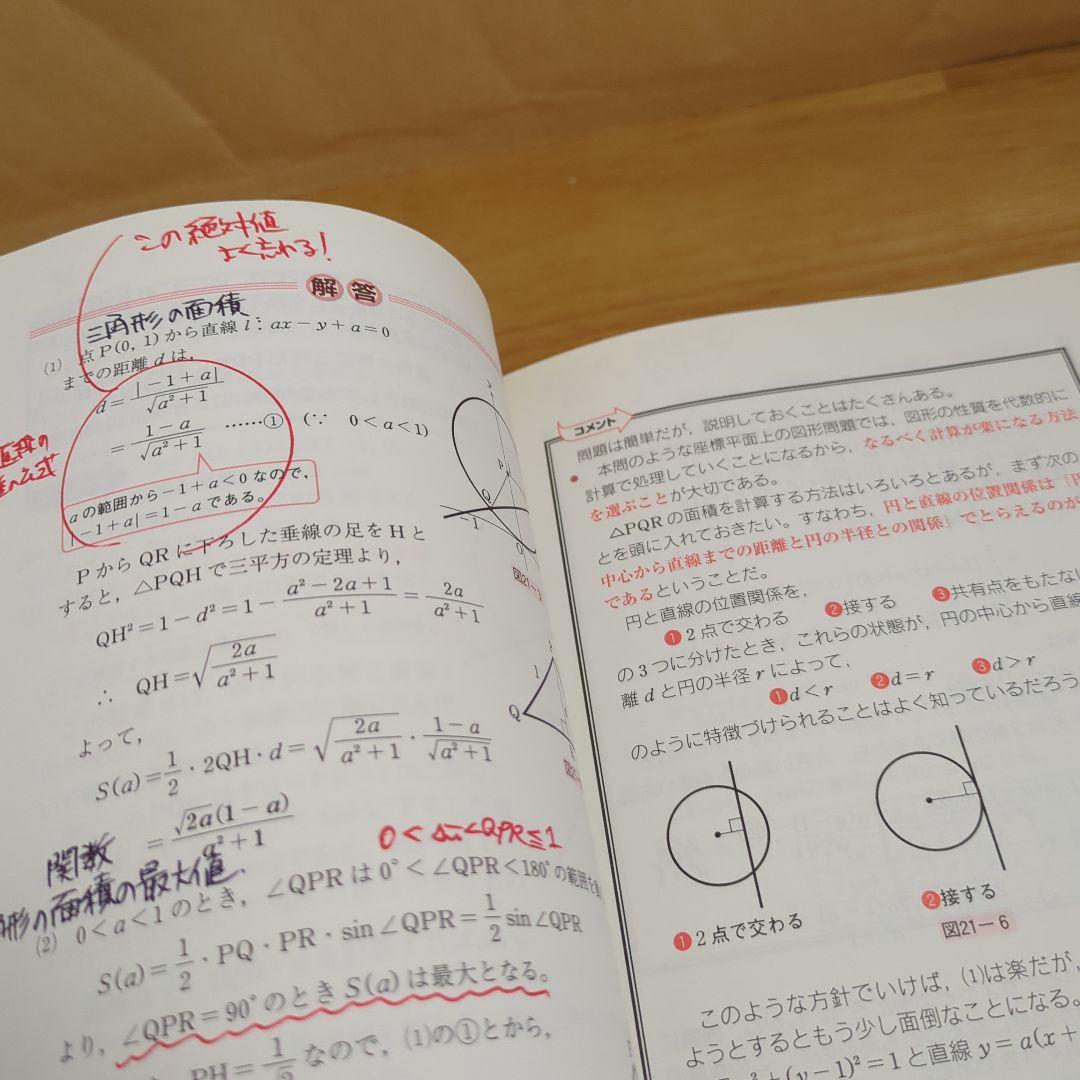 この絶対値
よく忘れる!
解答
三角形の面積
(1) 点P(0, 1)から直線 l : ax − y + a = 0
までの距離 d は,
d = |−1 + a| / √(a² + 1)
= (1 − a) / √(a² + 1) ……① (∵ 0 < a < 1)
a の範囲から −1 + a < 0 なので,
|−1 + a| = 1 − a である。
P から QR に下ろした垂線の足を H と
すると, △PQH で三平方の定理より,
QH² = 1 − d² = 1 − (a² − 2a + 1) / (a² + 1) = 2a / (a² + 1)
∴ QH = √(2a / (a² + 1))
よって,
S(a) = 1/2 · 2QH · d = √(2a / (a² + 1)) · (1 − a) / √(a² + 1)
= √2a (1 − a) / (a² + 1)
関数
形の面積の最大値.
0 < sin∠QPR ≦ 1
(2) 0 < a < 1 のとき, ∠QPR は 0° < ∠QPR < 180° の範囲を
S(a) = 1/2 · PQ · PR · sin∠QPR = 1/2 sin∠QPR
より, ∠QPR = 90° のとき S(a) は最大となる。
PH = 1/√2 なので, (1)の①とから,
P
Q
−1
O
図21−
1
Q
コメント
問題は簡単だが, 説明しておくことはたくさんある。
本問のような座標平面上の図形問題では, 図形の性質を代数的に
計算で処理していくことになるから, なるべく計算が楽になる方法
を選ぶことが大切である。
△PQR の面積を計算する方法はいろいろとあるが, まず次の
とを頭に入れておきたい。すなわち, 円と直線の位置関係は「円
中心から直線までの距離と円の半径との関係」でとらえるのが
であるということだ。
円と直線の位置関係を,
❶2点で交わる ❷接する ❸共有点をもたない
の3つに分けたとき, これらの状態が, 円の中心から直線
離 d と円の半径 r によって,
❶d < r ❷d = r ❸d > r
のように特徴づけられることはよく知っているだろう
❶2点で交わる
❷接する
図21−6
このような方針でいけば, (1)は楽だが,
ようとするともう少し面倒なことになる。
² + (y − 1)² = 1 と直線 y = a(x +